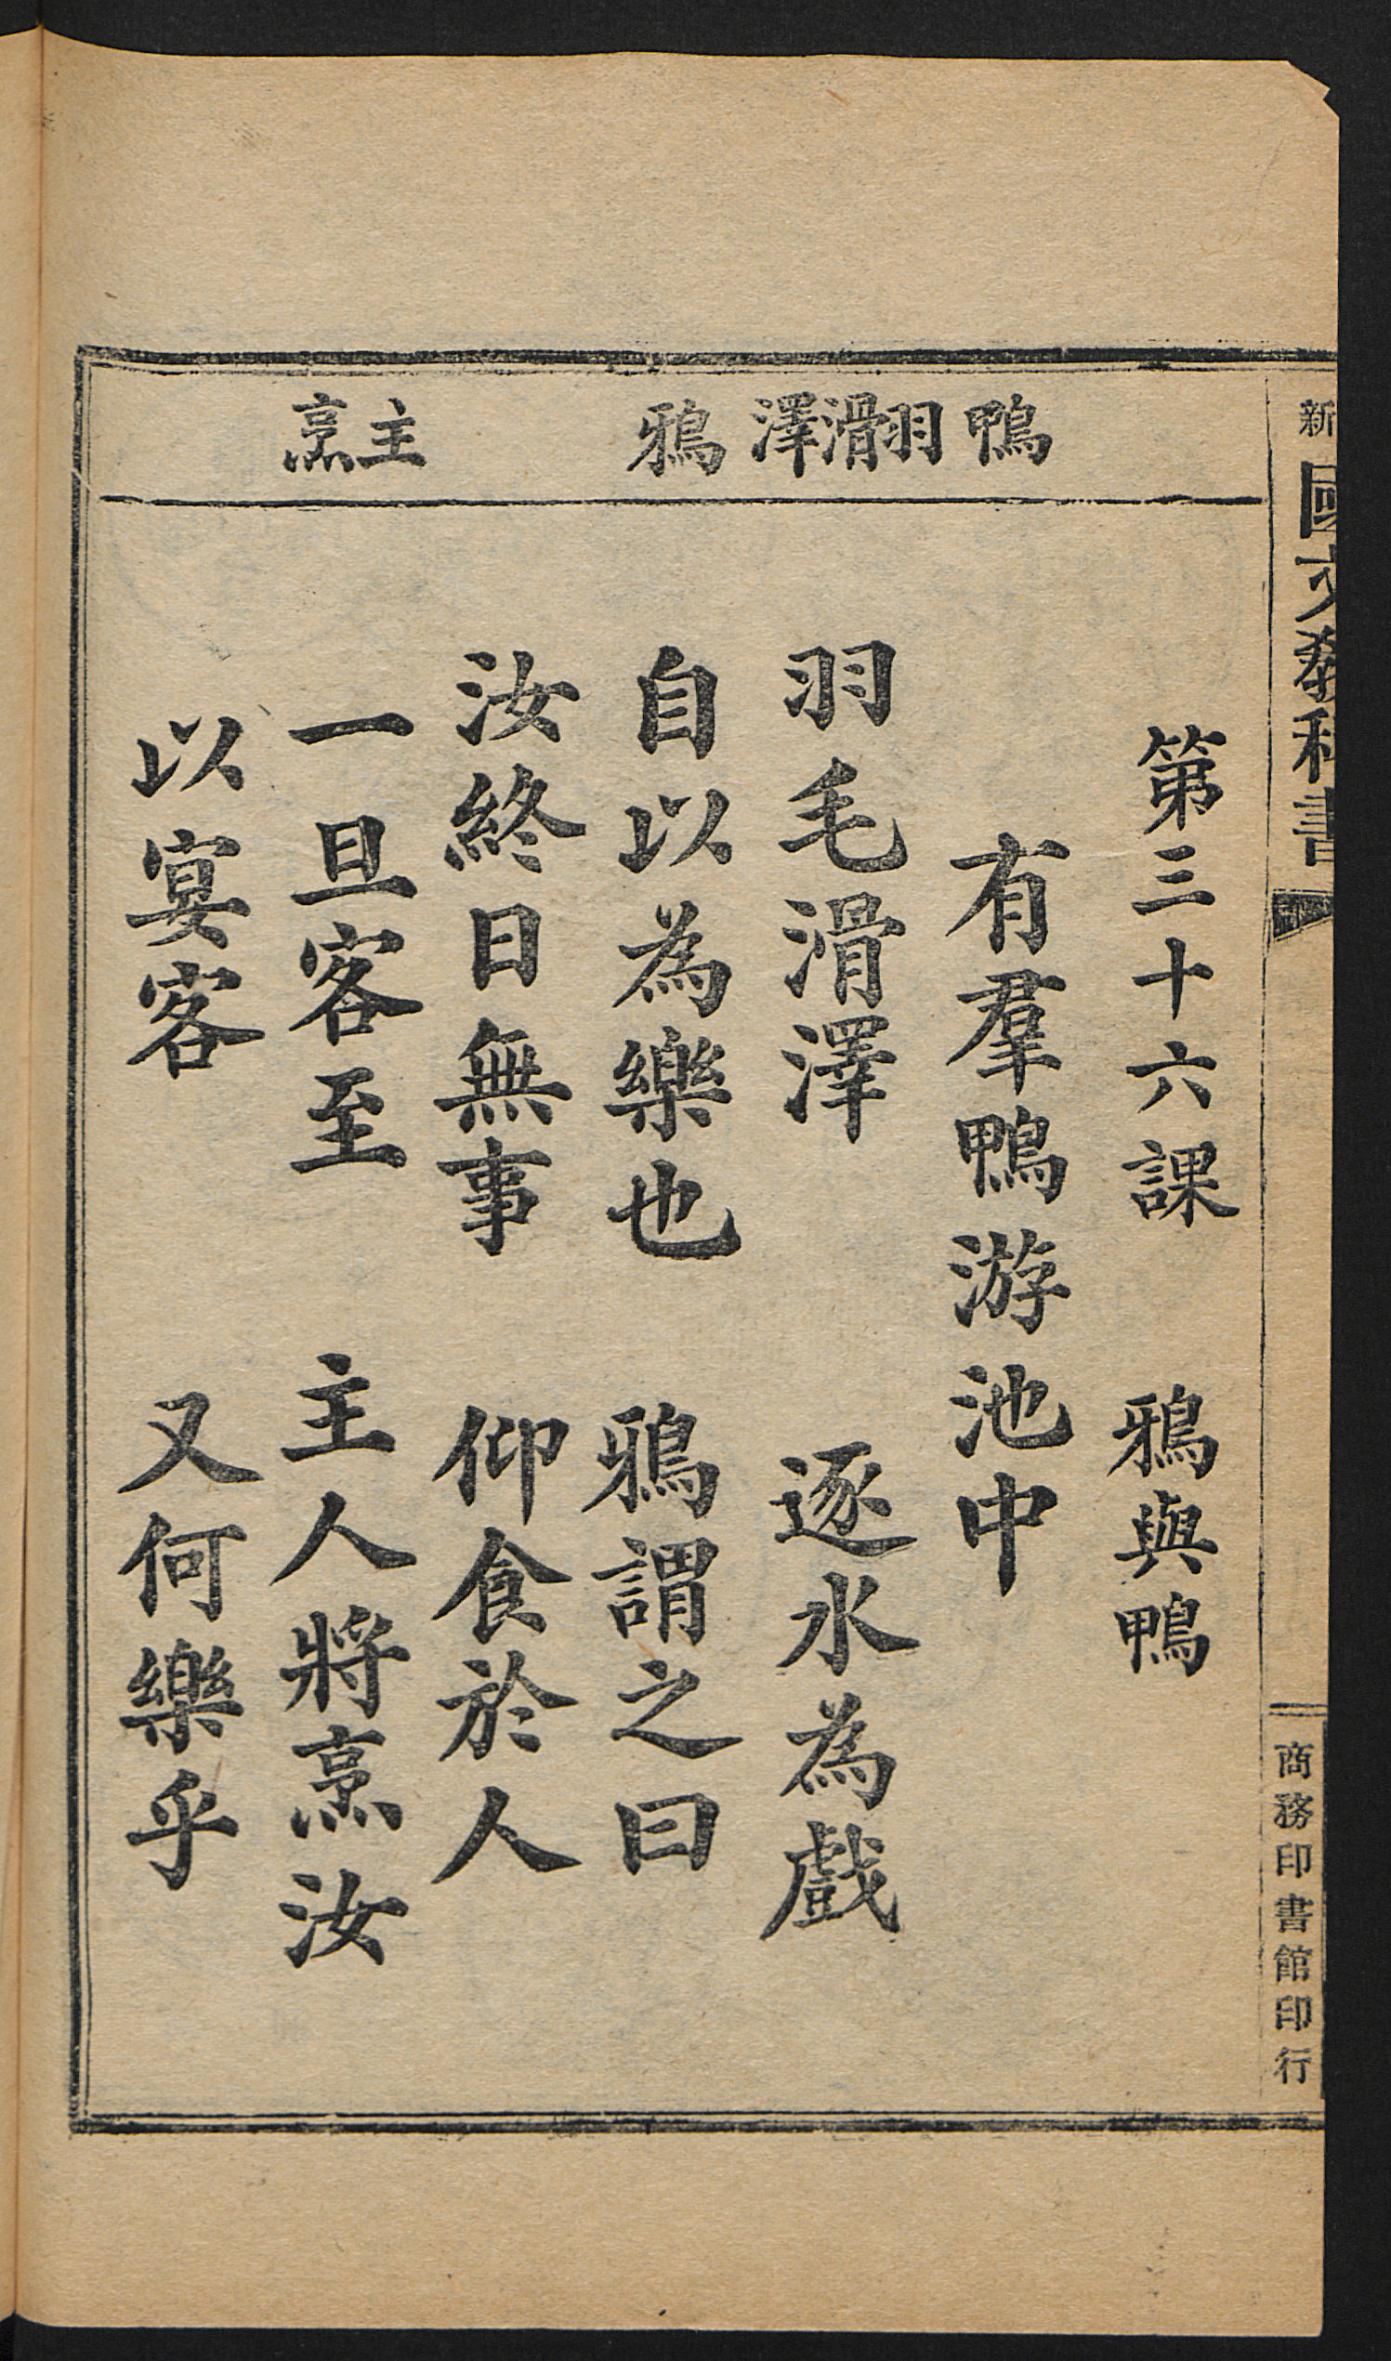 新國文教科書
商務印書館印行
鴨
羽滑澤
鴉
主烹
第三十六課　鴉與鴨
有羣鴨游池中
羽毛滑澤　逐水為戲
自以為樂也　鴉謂之曰
汝終日無事　仰食於人
一旦客至　主人將烹汝
以宴客　又何樂乎